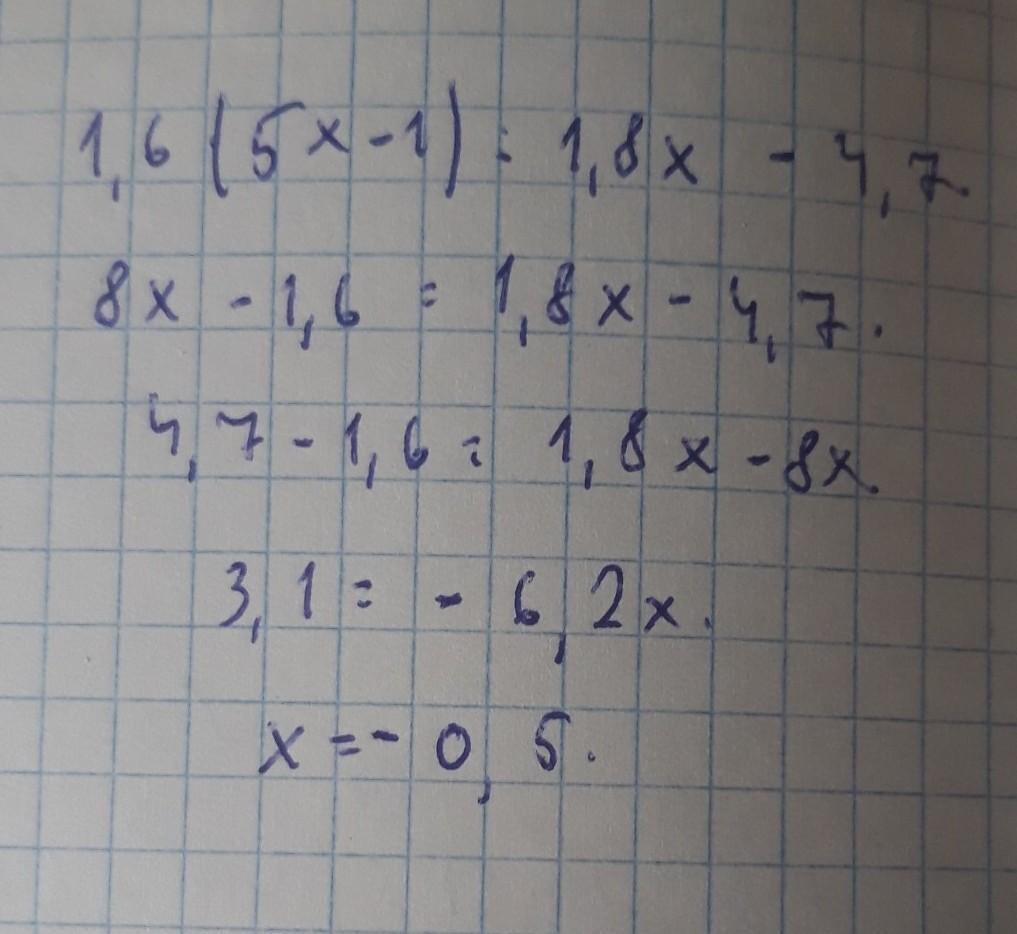 1,6(5x-1) = 1,8x - 4,7
8x - 1,6 = 1,8x - 4,7.
4,7 - 1,6 = 1,8x - 8x
3,1 = - 6,2x.
x = - 0,5.